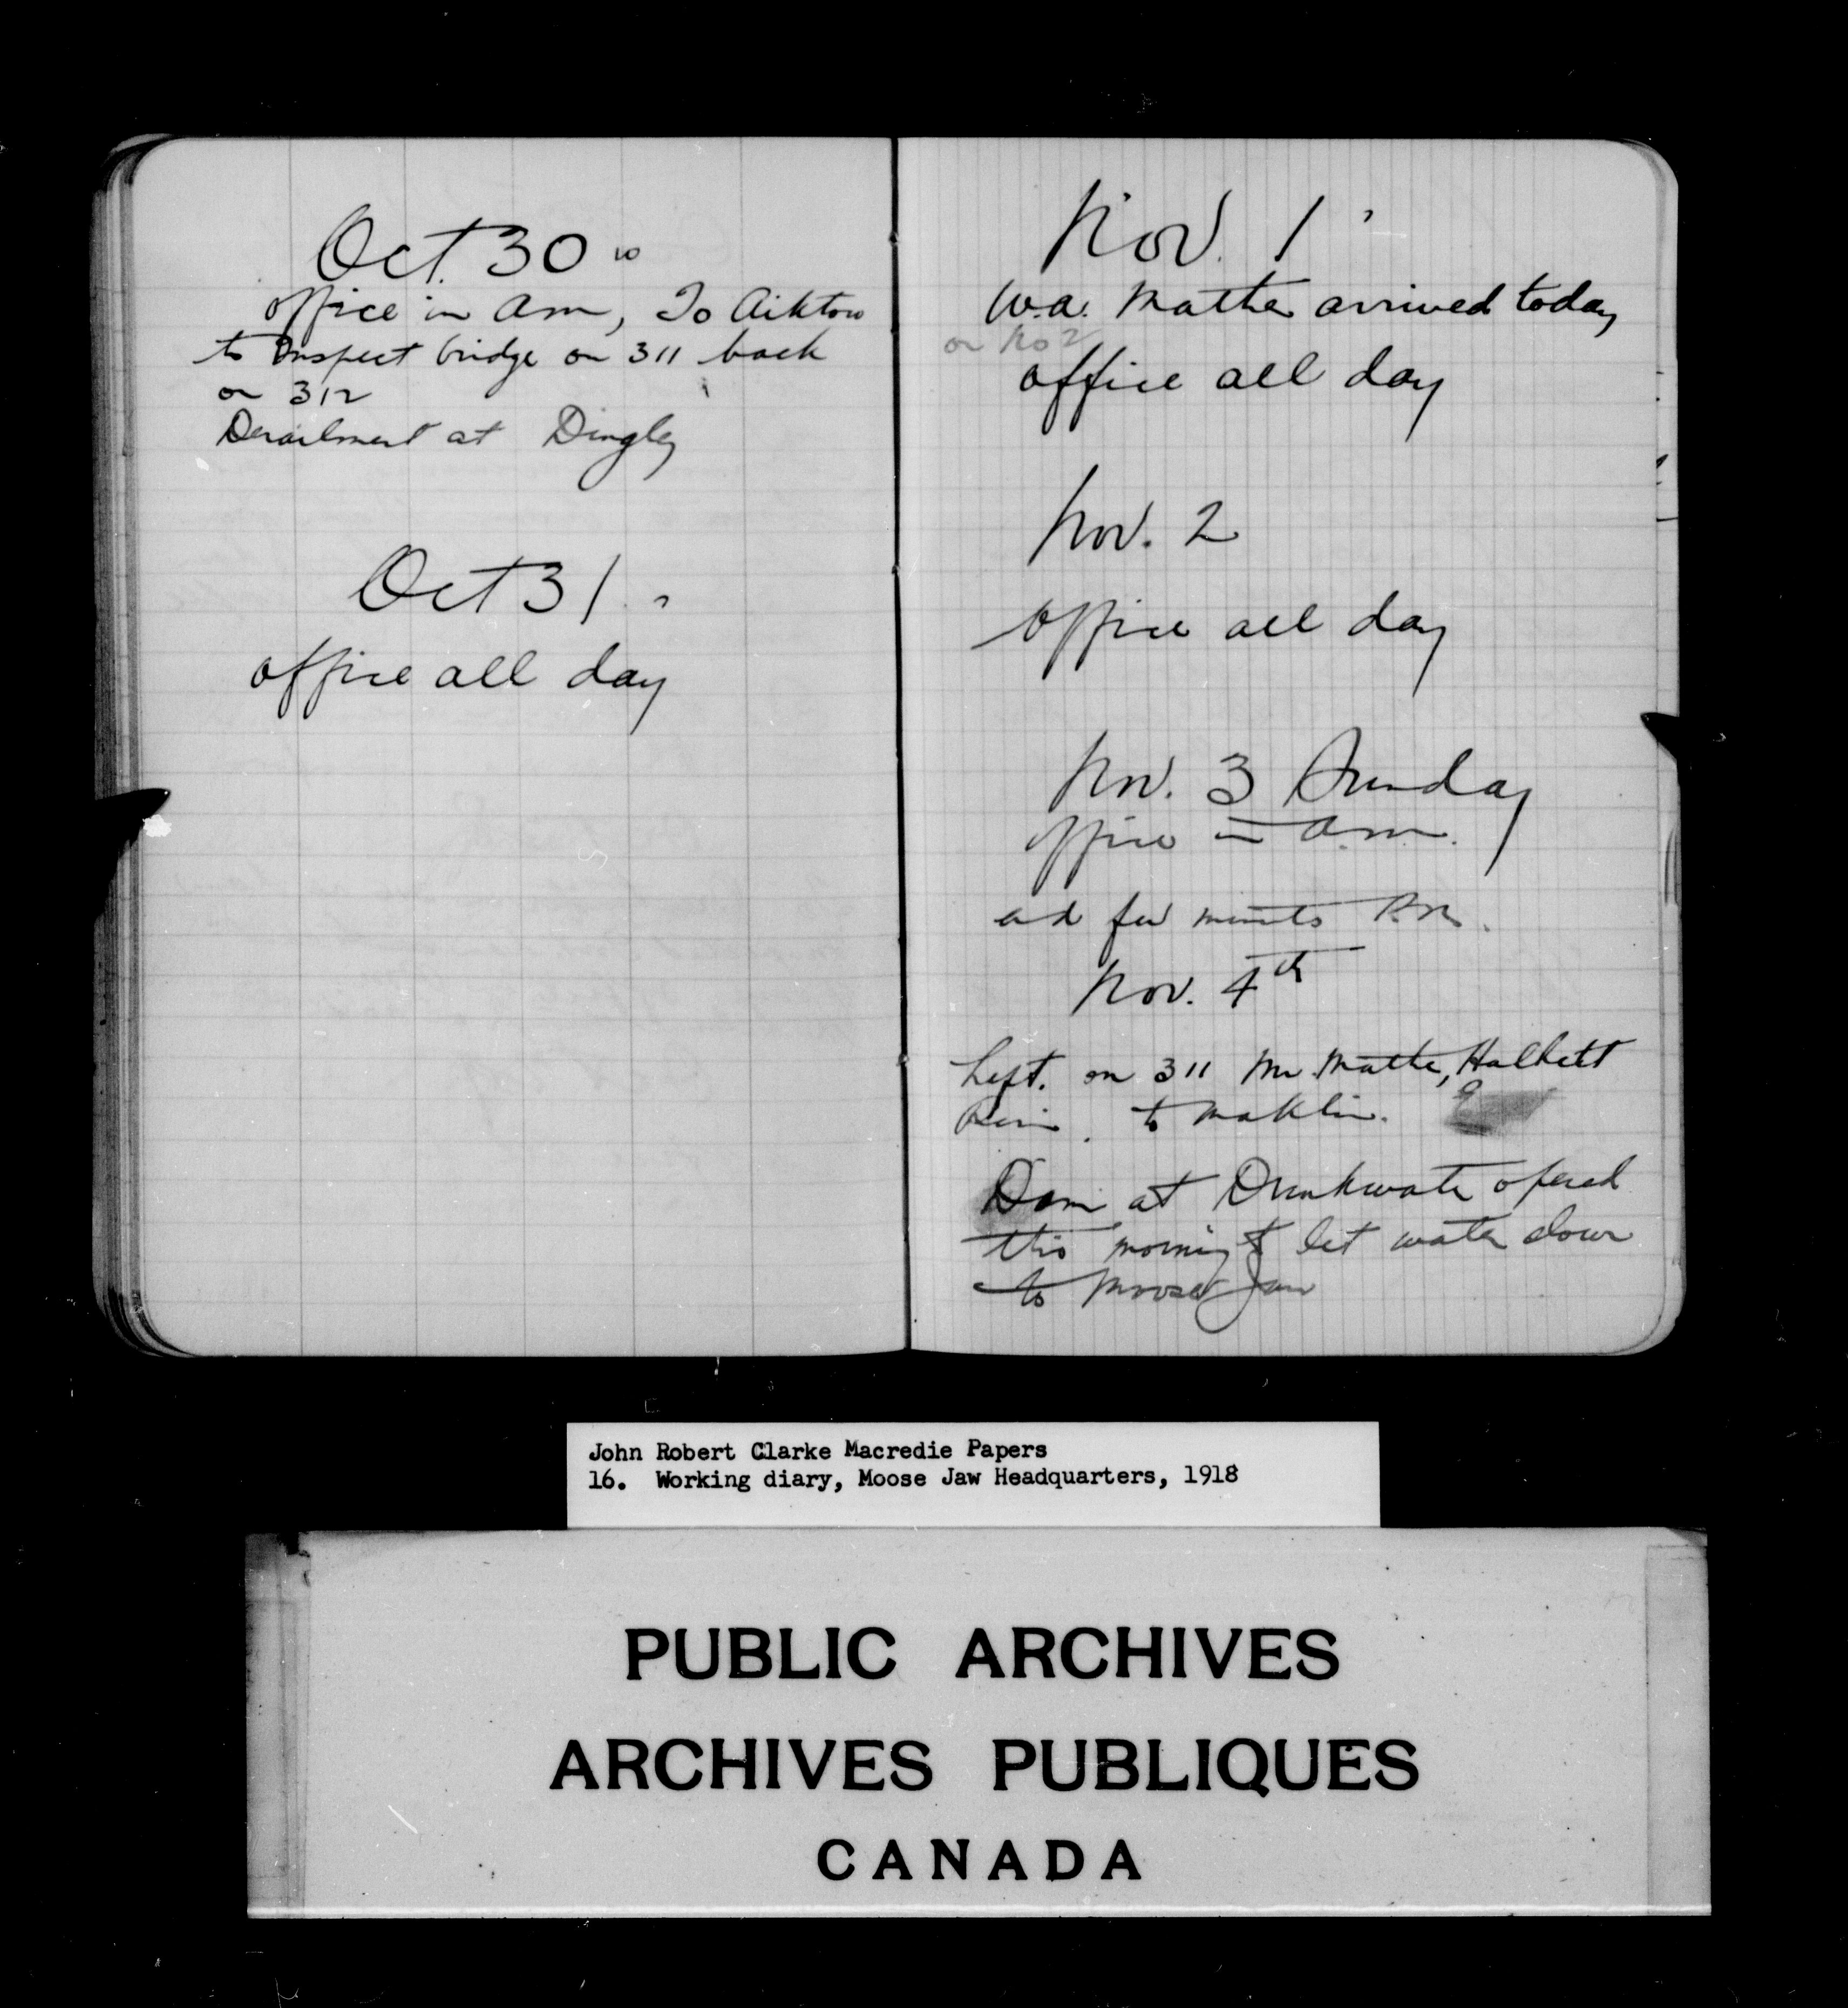 Oct. 30
office in am, To Aiktow
to inspect bridge on 311 back
on 312
Derailment at Dingley
Oct 31
office all day
Nov. 1
W.A. Mather arrived today
on No 2
office all day
Nov. 2
office all day
Nov. 3 Sunday
office in a.m.
and few minutes P.M.
Nov. 4th
Left. on 311 Mr Mather, Halkett
to Maklin.
Dam at Drinkwater opened
this morning & let water down
to Moose Jaw
John Robert Clarke Macredie Papers
16. Working diary, Moose Jaw Headquarters, 1918
PUBLIC ARCHIVES
ARCHIVES PUBLIQUES
CANADA